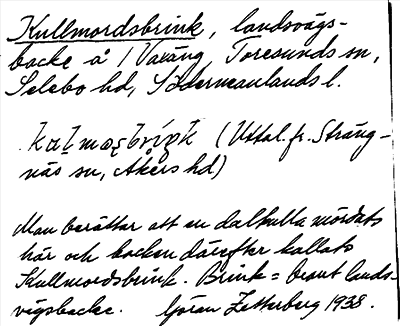 Kullmordsbrink, landsvägs-
backe å 1 Vaxäng, Toresunds sn,
Selebo hd, Södermanlands l.
(Uttal. fr. Sträng-
näs sn, Åkers hd)
Man berättar att en dalkulla mördats
här och backen därefter kallats
Kullmordsbrink. Brink = brant lands-
vägsbacke. Göran Zetterberg 1938.